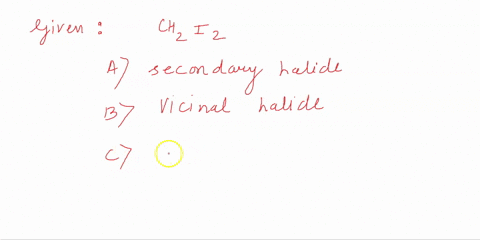 Given : CH2 I2
A) secondary halide
B) Vicinal halide
C)